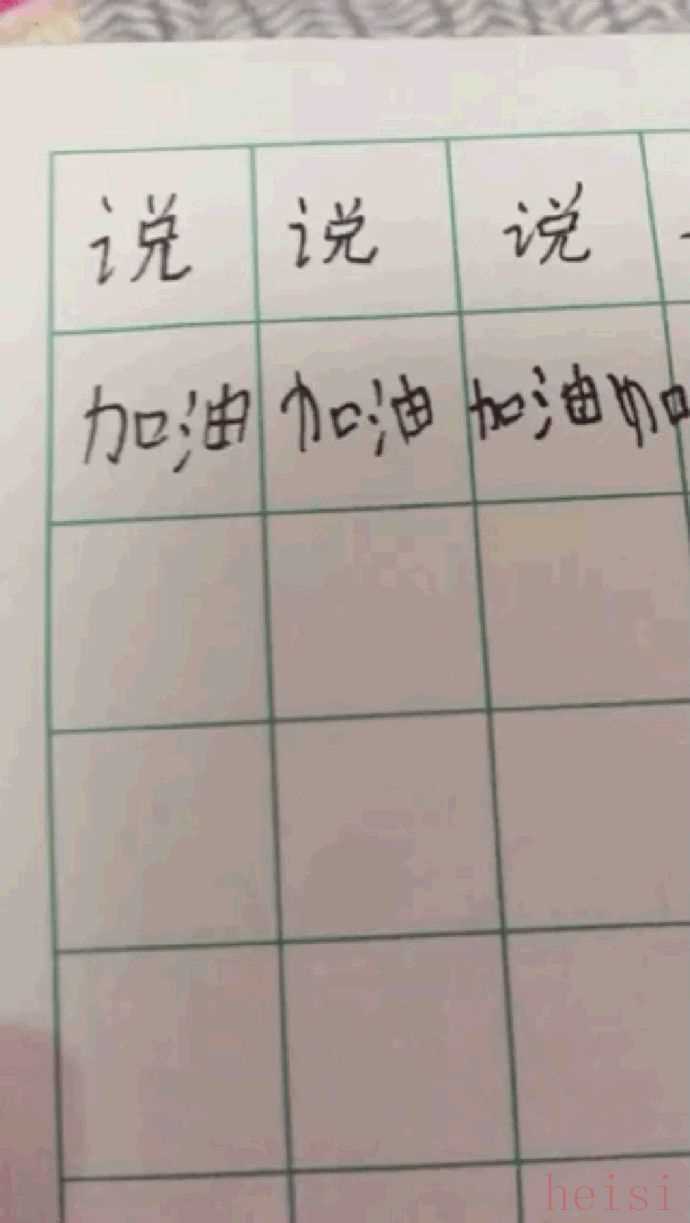 说 说 说
加油 加油 加油 加
heisi